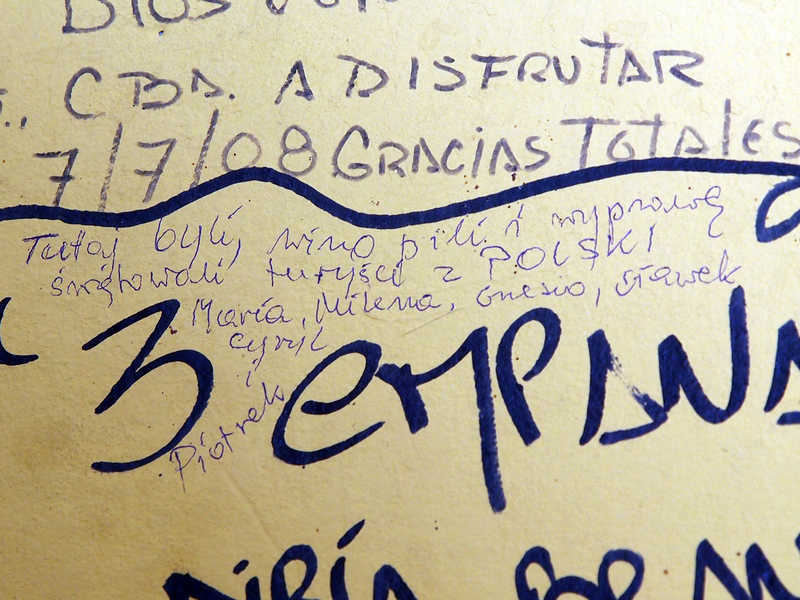 DIOS
CBA. A DISFRUTAR
7/7/08 GRACIAS TOTALES
Tutaj byli, wino pili i wyprawę
świętowali turyści z POLSKI
Maria, Milena, Gnesio, Sławek
Cyryl
i
Piotrek
3 EMPANA